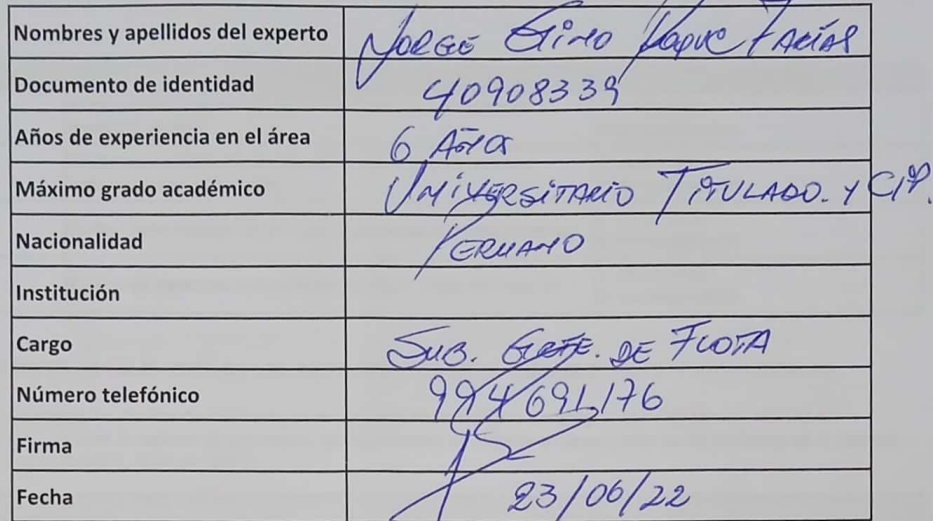 Nombres y apellidos del experto JORGE GINO Farías
Documento de identidad 40908339
Años de experiencia en el área 6 AÑOS
Máximo grado académico UNIVERSITARIO TITULADO. Y CIP.
Nacionalidad PERUANO
Institución
Cargo SUB. GERTE. DE FLOTA
Número telefónico 994691176
Firma
Fecha 23/06/22